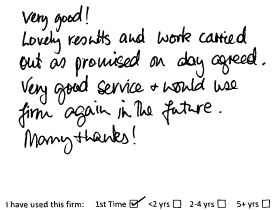 Very good!
Lovely results and work carried
out as promised on day agreed.
Very good service + would use
firm again in the future.
Many thanks!
I have used this firm: 1st Time ☑ <2 yrs ☐ 2-4 yrs ☐ 5+ yrs ☐